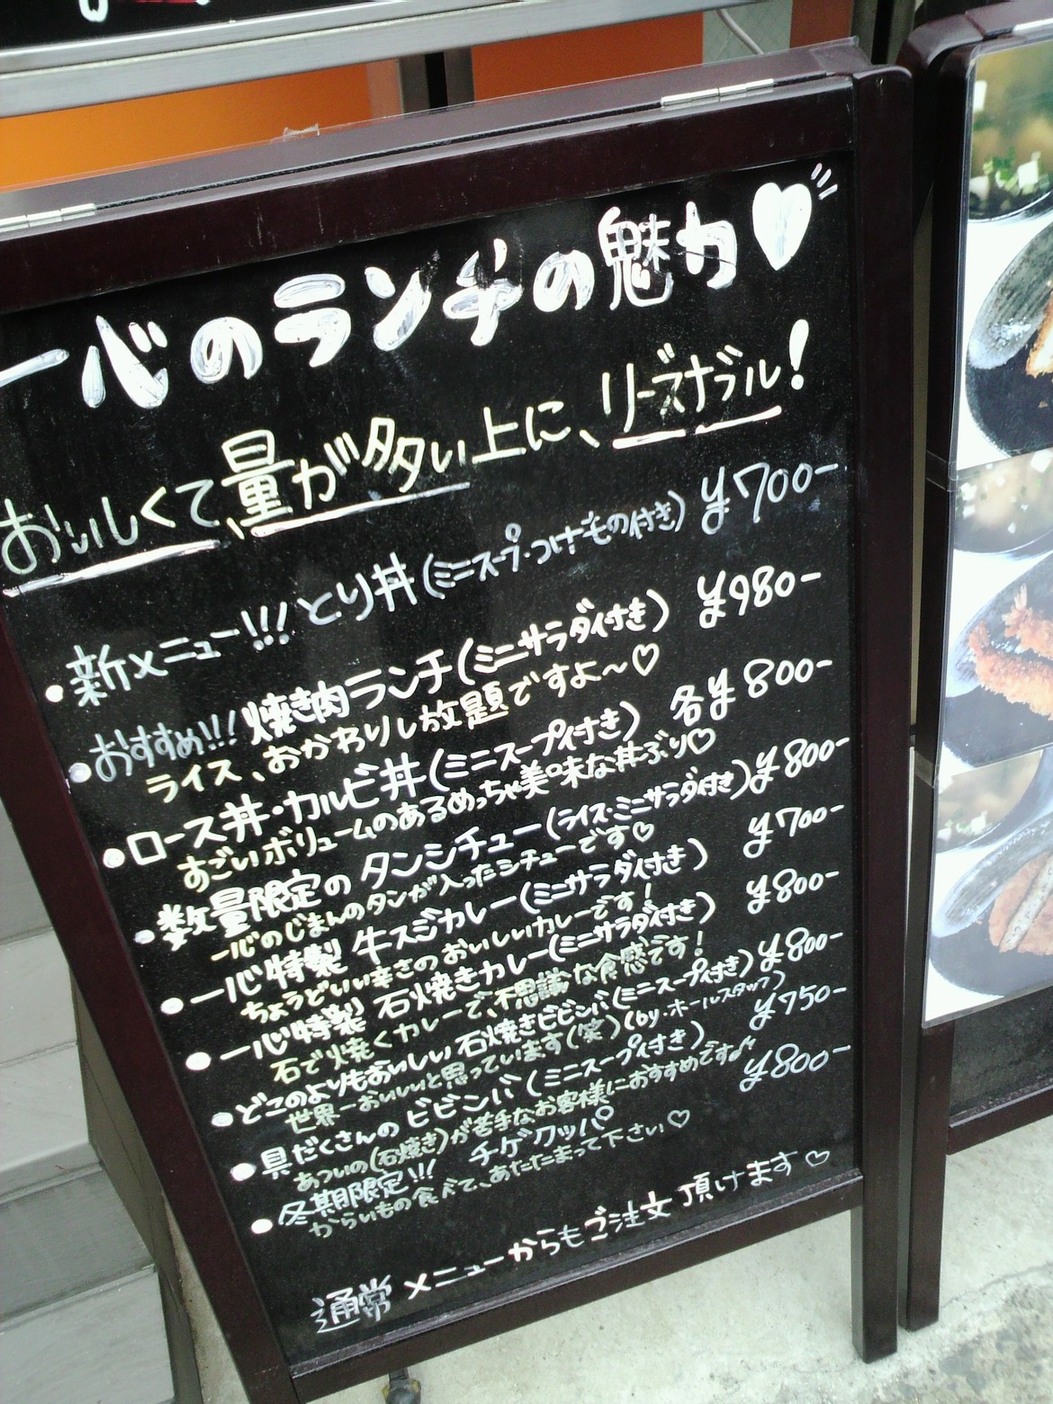 一心のランチの魅力♡
おいしくて、量が多い上に、リーズナブル!
・新メニュー!!! とり丼(ミニスープ・つけもの付き) ¥700-
・おすすめ!!! 焼き肉ランチ(ミニサラダ付き) ¥980-
ライス、おかわりし放題ですよ〜♡
・ロース丼・カルビ丼(ミニスープ付き) 各¥800-
すごいボリュームのあるめっちゃ美味な丼ぶり♡
・数量限定の タンシチュー(ライス・ミニサラダ付き) ¥800-
一心のじまんのタンが入ったシチューです♡
・一心特製 牛スジカレー(ミニサラダ付き) ¥700-
ちょうどいい辛さのおいしいカレーです!
・一心特製 石焼きカレー(ミニサラダ付き) ¥800-
石で焼くカレーで、不思議な食感です!
・どこのよりもおいしい 石焼きビビンバ(ミニスープ付き) ¥800-
世界一おいしいと思っています(笑)(by・ホールスタッフ)
・具だくさんの ビビンバ(ミニスープ付き) ¥750-
あついの(石焼き)が苦手なお客様におすすめです♪
・冬期限定!!! チゲクッパ ¥800-
からいもの食べて、あたたまって下さい♡
通常 メニューからもご注文 頂けます♡